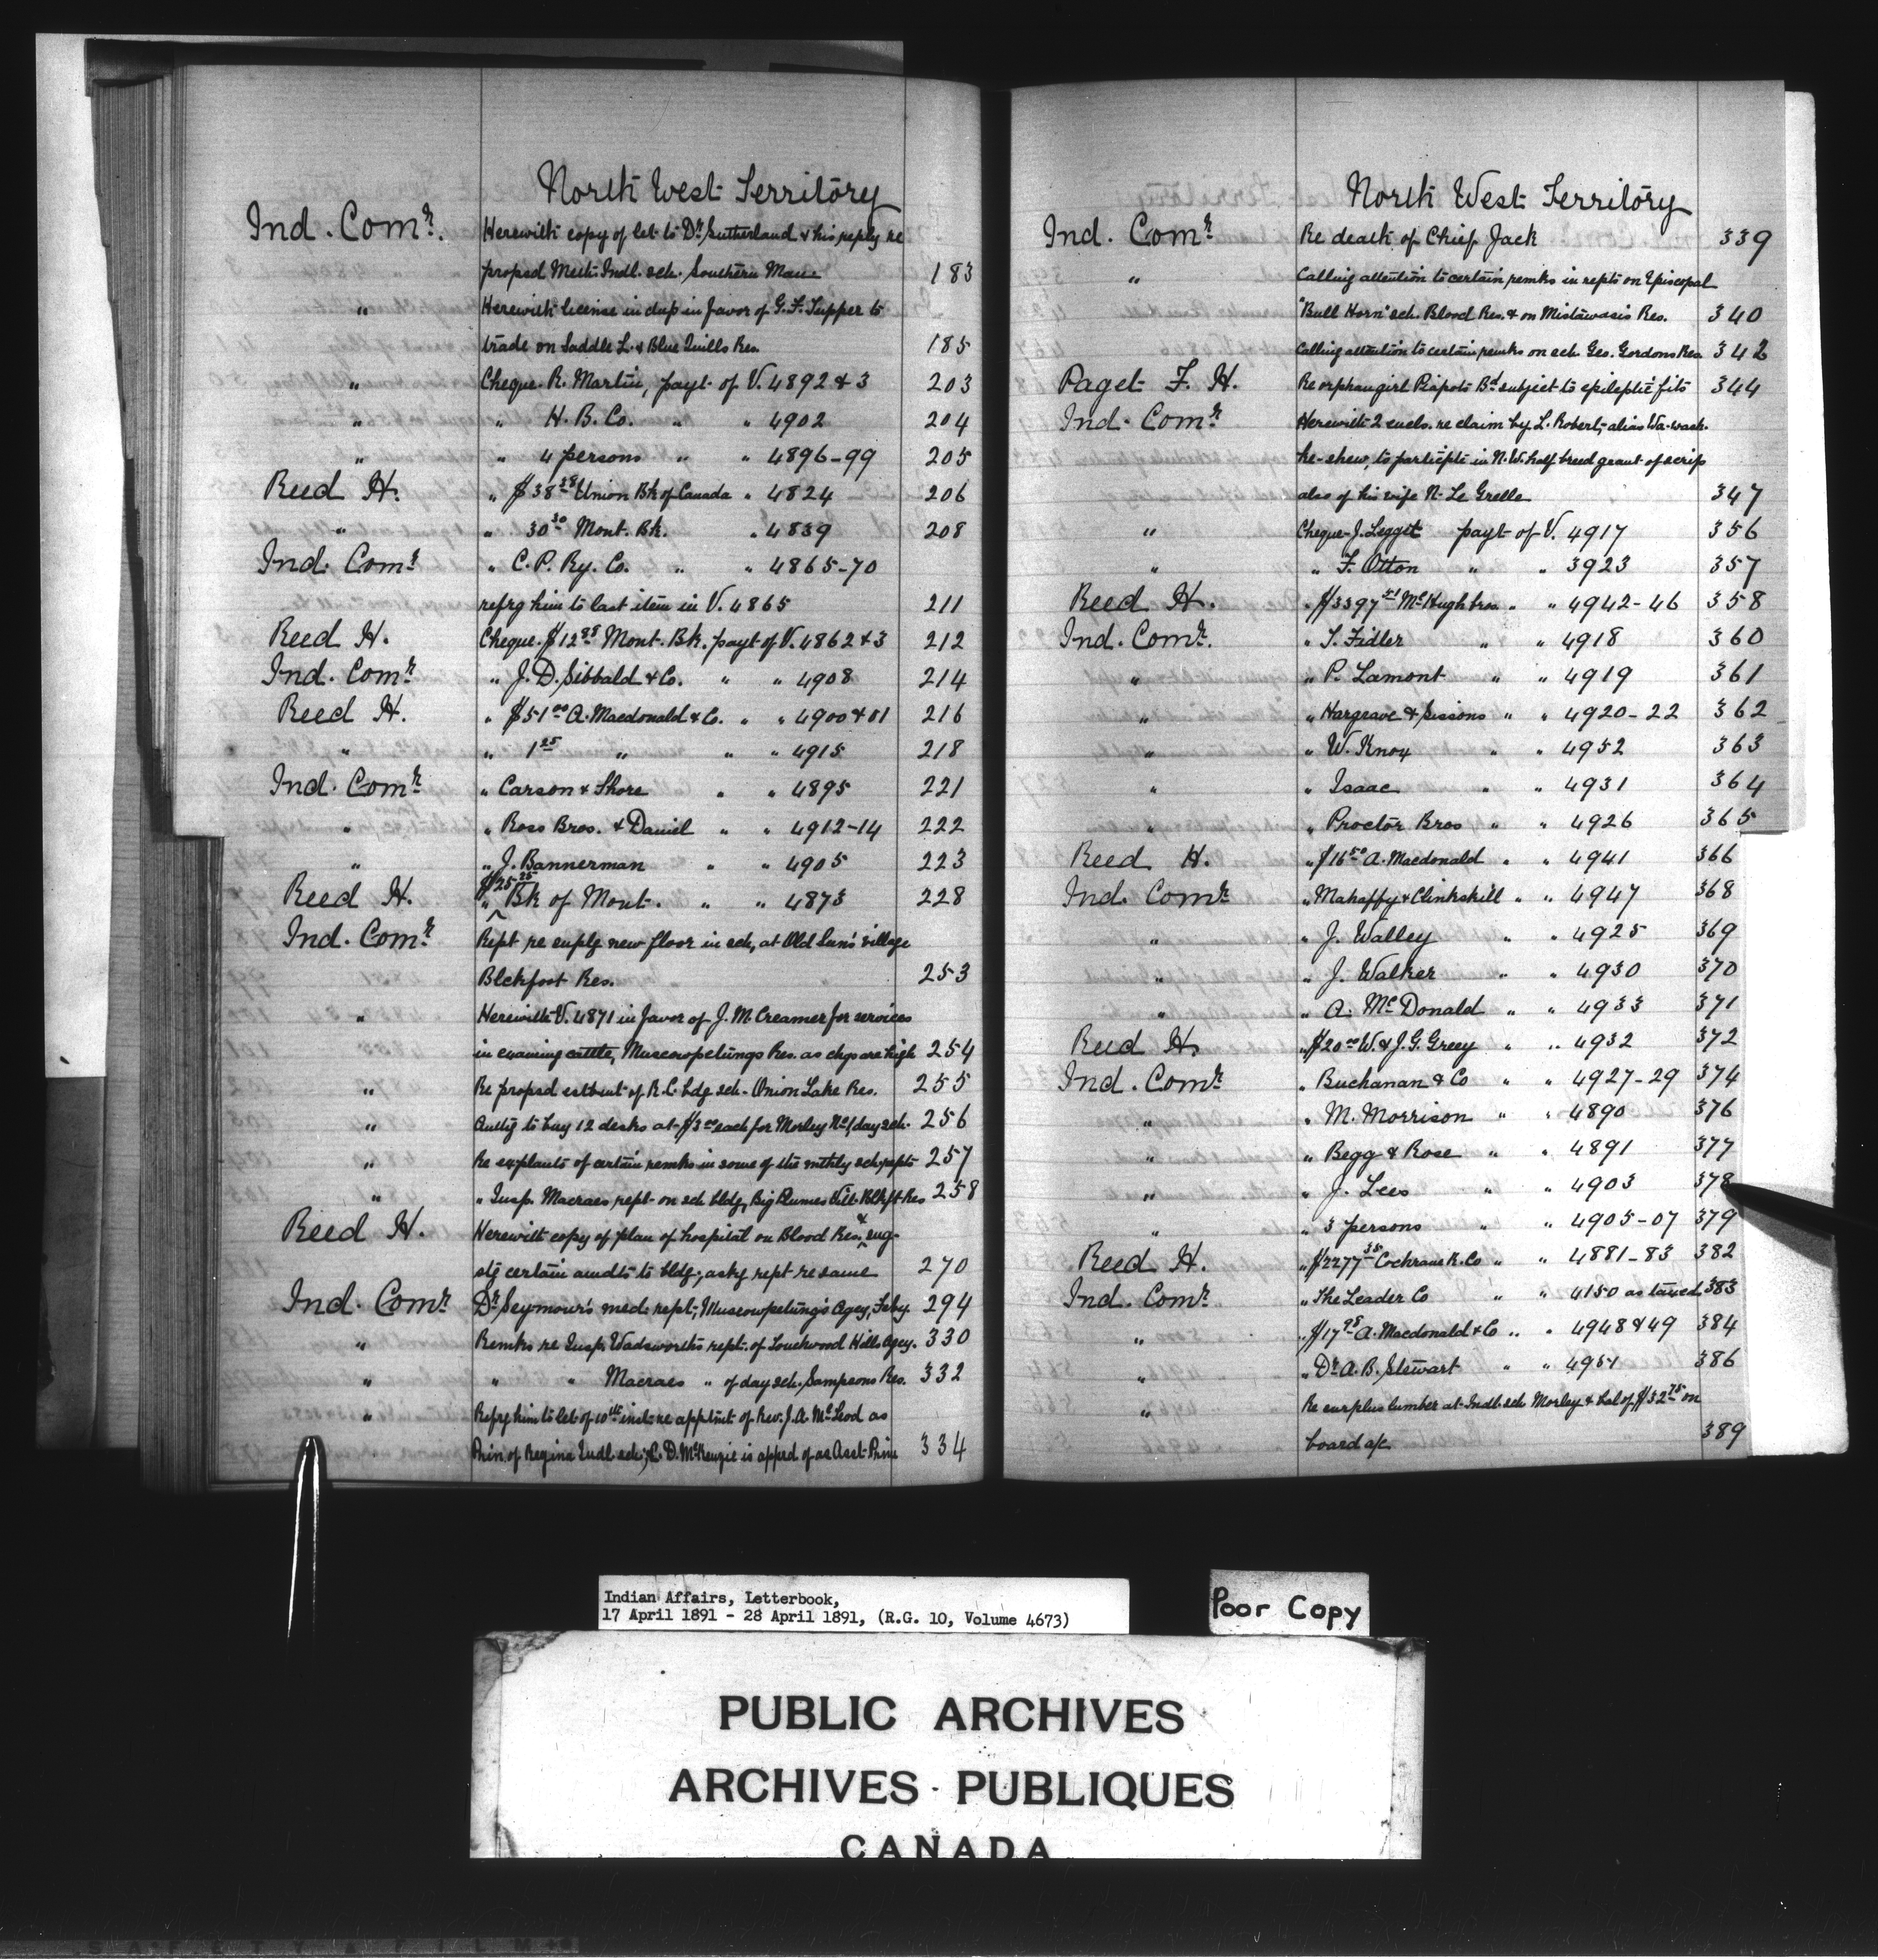 North West Territory
Ind. Comr. Herewith copy of let to Dr Sutherland & his reply re
propsd Meth Indl. sch. Southern Man 183
" Herewith license in dup in favor of G. F. Tupper to
trade on Saddle L. & Blue Quills Res. 185
" Cheque. R. Martin, payt of V. 4892 & 3 203
" " H. B. Co. " " 4902 204
" " 4 persons " " 4896-99 205
Reed H. " $38 38 Union Bk of Canada " 4824 206
" " 30 30 Mont. Bk. " 4839 208
Ind. Comr " C. P. Ry. Co. " " 4865-70
refrg him to last item in V. 4865 211
Reed H. Cheque. $12 95 Mont. Bk. payt of V. 4862 & 3 212
Ind. Comr " J. D. Sibbald & Co. " " 4908 214
Reed H. " $51 00 A. Macdonald & Co. " " 4900 & 01 216
" " 1 25 " " " 4915 218
Ind. Comr " Carson & Shore " " 4895 221
" " Ross Bros. & Daniel " " 4912-14 222
" " J. Bannerman " " 4905 223
Reed H. " $25 25 Bk of Mont. " " 4873 228
Ind. Comr Rept re suplg new floor in sch, at Old Sun's village
Blckfoot Res. 253
" Herewith V. 4871 in favor of J. M. Creamer for services
in examing cattle, Muscowpetungs Res. as chgs are high 254
" Re propsd estbmt of R. C. bdg sch- Onion Lake Res. 255
" Authg to buy 12 desks at $3 00 each for Morley No 1 day sch. 256
" Re explants of certain remks in some of the mthly sch repts 257
" " Insp. Macraes rept on sch bldg, Big Plumes Vill. Blkft Res 258
Reed H. Herewith copy of plan of hospital on Blood Res. & sug-
stg certain amdts to bldg, askg rept re same 270
Ind. Comr Dr Seymour's med. rept, Muscowpetung's Agcy, Feby. 294
" Remks re Insp. Wadsworth's rept. of Touchwood Hills Agcy. 330
" " " Macraes " of day sch. Sampsons Res. 332
" Refrg him to let of 10th inst re apptmt of Rev. J. A. McLeod as
Prin. of Regina Indl sch; C. D. McKenzie is apprd of as Asst Prin 334
North West Territory
Ind. Comr Re death of Chief Jack 339
" Calling attention to certain remks in repts on Episcopal
"Bull Horn" sch. Blood Res. & on Mistawasis Res. 340
Calling attention to certain remks on sch. Geo. Gordons Res. 342
Paget F. H. Re orphan girl Piapots Bd subject to epileptic fits 344
Ind. Comr Herewith 2 encls. re claim by L. Robert, alias Wa-wach-
ke-shew, to particpte in N. W. half breed grant of scrip
also of his wife N. Le Grelle 347
" Cheque J. Legget payt of V. 4917 356
" " F. Otton " " 3923 357
Reed H. " $3397 51 McHugh bros. " " 4942-46 358
Ind. Comr. " T. Fidler " " 4918 360
" " P. Lamont " " 4919 361
" " Hargrave & Sissons " " 4920-22 362
" " W. Knox " " 4952 363
" " Isaac " " 4931 364
" " Proctor Bros " " 4926 365
Reed H. " $16 50 A. Macdonald " " 4941 366
Ind. Comr " Mahaffy & Clinkskill " " 4947 368
" " J. Walley " " 4925 369
" " J. Walker " " 4930 370
" " A. McDonald " " 4933 371
Reed H. " $20 00 W. & J. G. Greey " " 4932 372
Ind. Comr " Buchanan & Co " " 4927-29 374
" " M. Morrison " " 4890 376
" " Begg & Rose " " 4891 377
" " J. Lees " " 4903 378
" " 3 persons " " 4905-07 379
Reed H. " $2277 35 Cochrane R. Co " " 4881-83 382
Ind. Comr " The Leader Co " " 4150 as taxed 383
" " $17 98 A. Macdonald & Co " " 4948 & 49 384
" " Dr A. B. Stewart " " 4951 386
" Re surplus lumber at Indl. sch Morley & bal of $32 75 on
board a/c 389
Indian Affairs, Letterbook,
17 April 1891 - 28 April 1891, (R.G. 10, Volume 4673)
Poor Copy
PUBLIC ARCHIVES
ARCHIVES · PUBLIQUES
CANADA